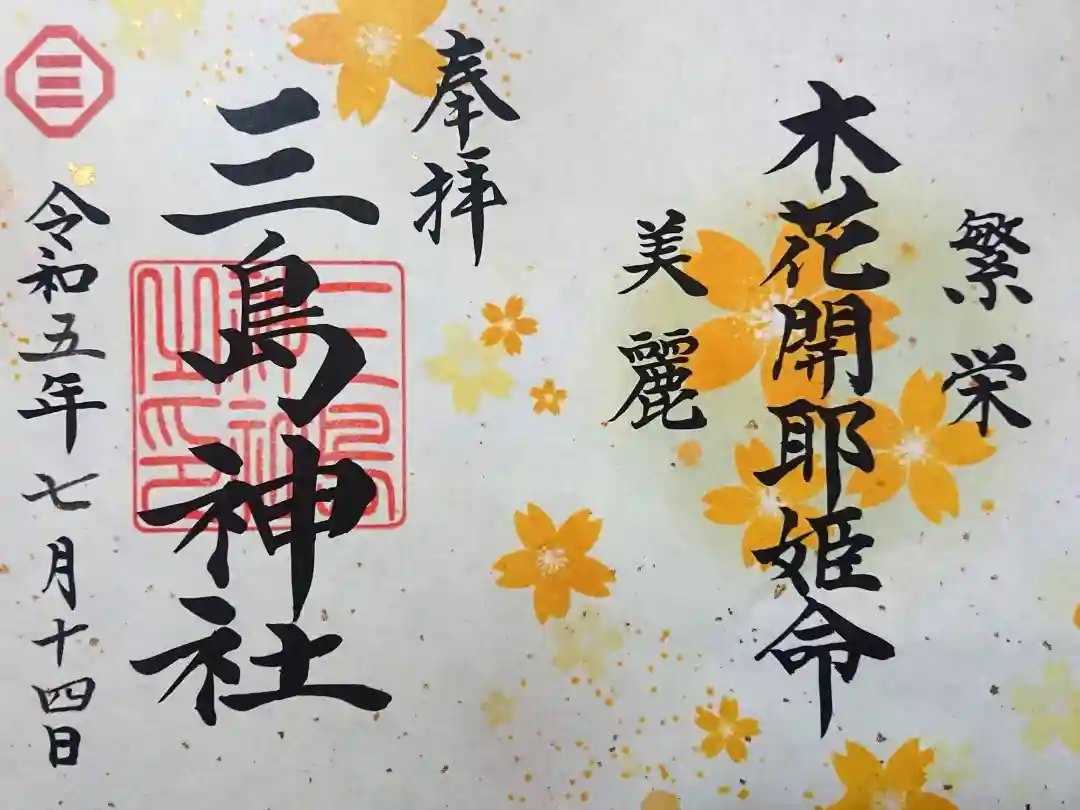 繁栄
木花開耶姫命
美麗
奉拝
三島神社
令和五年七月十四日